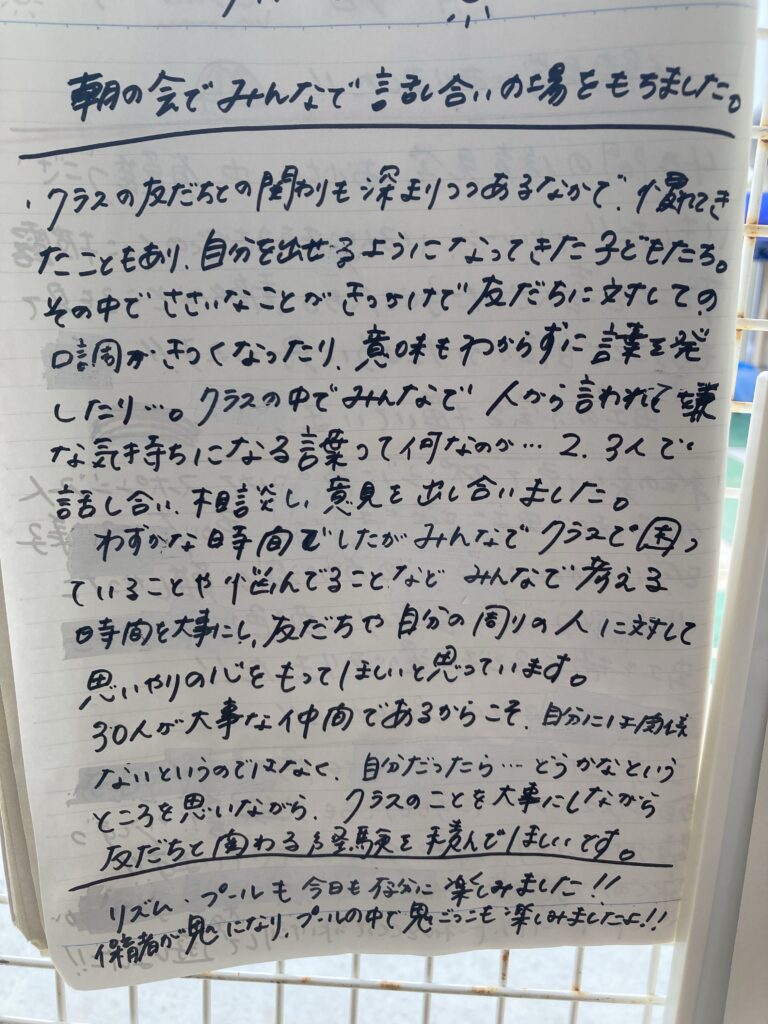 朝の会でみんなで話し合いの場をもちました。
クラスの友だちとの関わりも深まりつつあるなかで、慣れてき
たこともあり、自分を出せるようになってきた子どもたち。
その中でささいなことがきっかけで友だちに対しての
口調がきつくなったり、意味もわからずに言葉を発
したり…。クラスの中でみんなで人から言われて嫌
な気持ちになる言葉って何なのか…2、3人で
話し合い、相談し、意見を出し合いました。
わずかな時間でしたがみんなでクラスで困っ
ていることや悩んでることなどみんなで考える
時間を大事にし、友だちや自分の周りの人に対して
思いやりの心をもってほしいと思っています。
30人が大事な仲間であるからこそ、自分には関係
ないというのではなく、自分だったら…どうかなという
ところを思いながら、クラスのことを大事にしながら
友だちと関わる経験を積んでほしいです。
リズム、プールも今日も存分に楽しみました!!
保育者が鬼になり、プールの中で鬼ごっこも楽しみましたよ!!